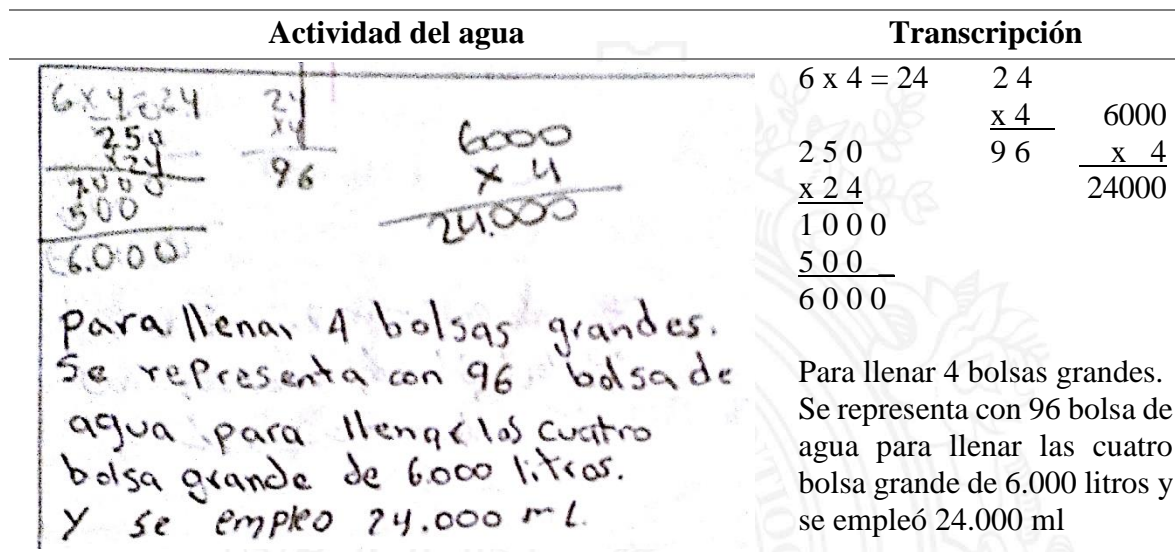 Actividad del agua
6 x 4 = 24
250
x24
1000
500
6.000
24
x4
96
6000
x 4
24.000
para llenar 4 bolsas grandes.
Se representa con 96 bolsa de
agua para llenar los cuatro
bolsa grande de 6.000 litros.
Y se empleo 24.000 ml.
Transcripción
6 x 4 = 24 2 4
x 4 6000
2 5 0 9 6 x 4
x 2 4 24000
1 0 0 0
5 0 0 _
6 0 0 0
Para llenar 4 bolsas grandes.
Se representa con 96 bolsa de
agua para llenar las cuatro
bolsa grande de 6.000 litros y
se empleó 24.000 ml